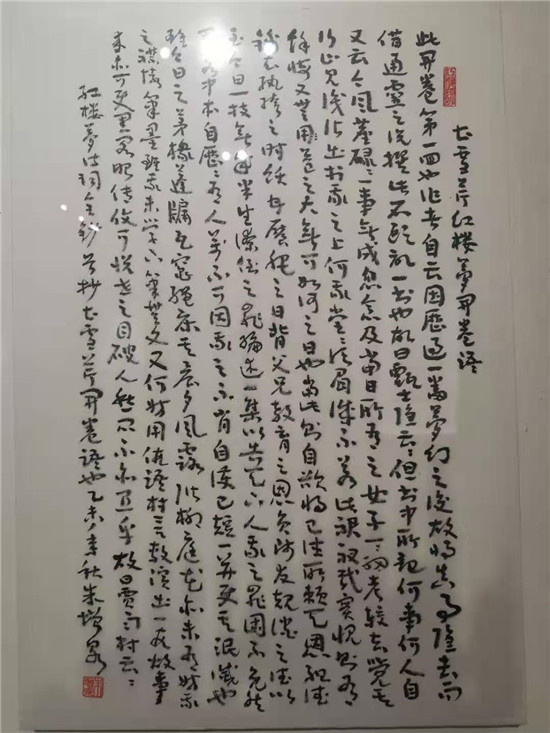 曹雪芹红楼梦开卷语
此开卷第一回也作者自云因历过一番梦幻之后故将真事隐去而
借通灵之说撰此石头记一书也故曰甄士隐云云但书中所记何事何人自
又云今风尘碌碌一事无成忽念及当日所有之女子一一细考较去觉其
行止见识皆出于我之上何我堂堂须眉诚不若此裙钗哉实愧则有
馀悔又无益之大无可如何之日也当此则自欲将已往所赖天恩祖德
锦衣纨绔之时饫甘餍肥之日背父兄教育之恩负师友规谈之德以
至今日一技无成半生潦倒之罪编述一集以告天下人我之罪固不免然
闺阁中本自历历有人万不可因我之不肖自护己短一并使其泯灭也
虽今日之茅椽蓬牖瓦灶绳床其晨夕风露阶柳庭花亦未有妨我
之襟怀笔墨虽我未学下笔无文又何妨用俚语村言敷演出一段故事
来亦可使闺阁昭传复可悦世之目破人愁闷不亦宜乎故曰贾雨村云云
红楼梦诗词全钞首抄曹雪芹开卷语也乙未年秋朱增泉